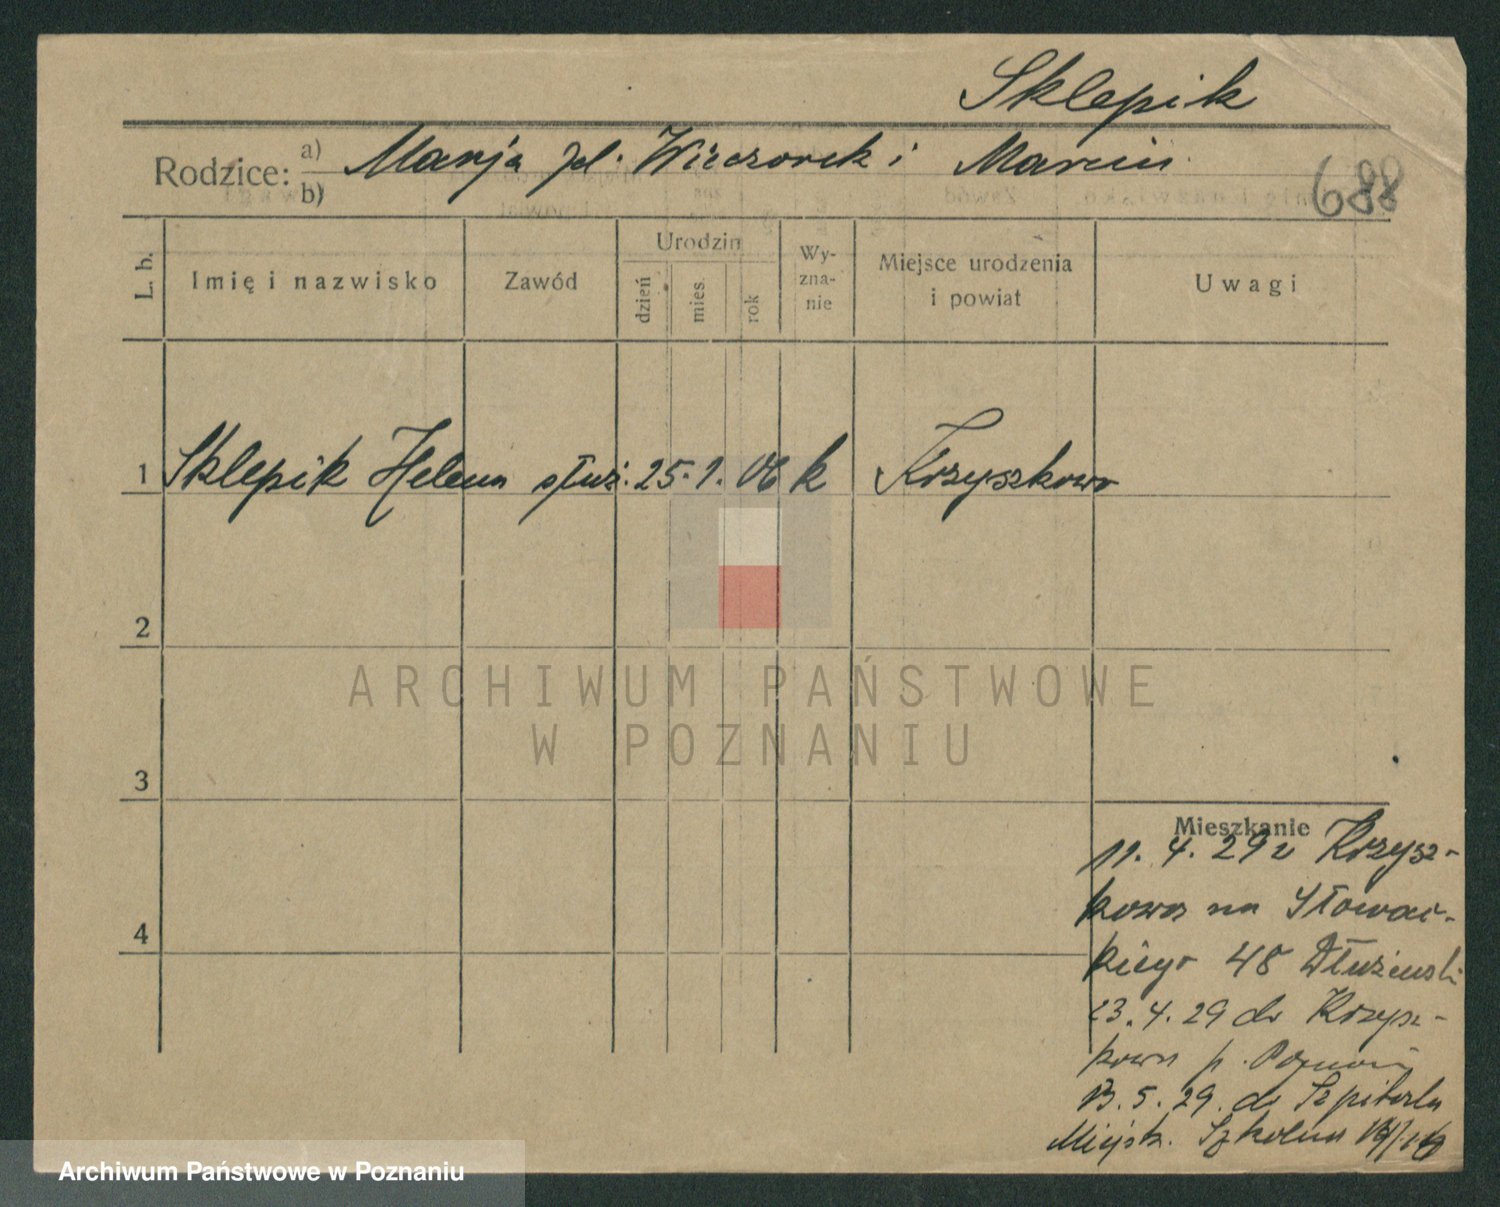 Sklepik
Rodzice: a) Marija Wieczorek i Marcin
b)
688
L. b. Imię i nazwisko Zawód Urodzin dzień mies rok Wy-zna-nie Miejsce urodzenia i powiat Uwagi
1 Sklepik Helena służ. 25. 1. 06 k Krzyszkowo
2
3
4
Mieszkanie
11. 4. 29 z Krzysz-
kowa na Słowac-
kiego 48 Dłużewski
23. 4. 29 do Krzysz-
kowa p. Poznań
13. 5. 29. do Szpitala
Miejsk. Szkolna
ARCHIWUM PAŃSTWOWE
W POZNANIU
Archiwum Państwowe w Poznaniu